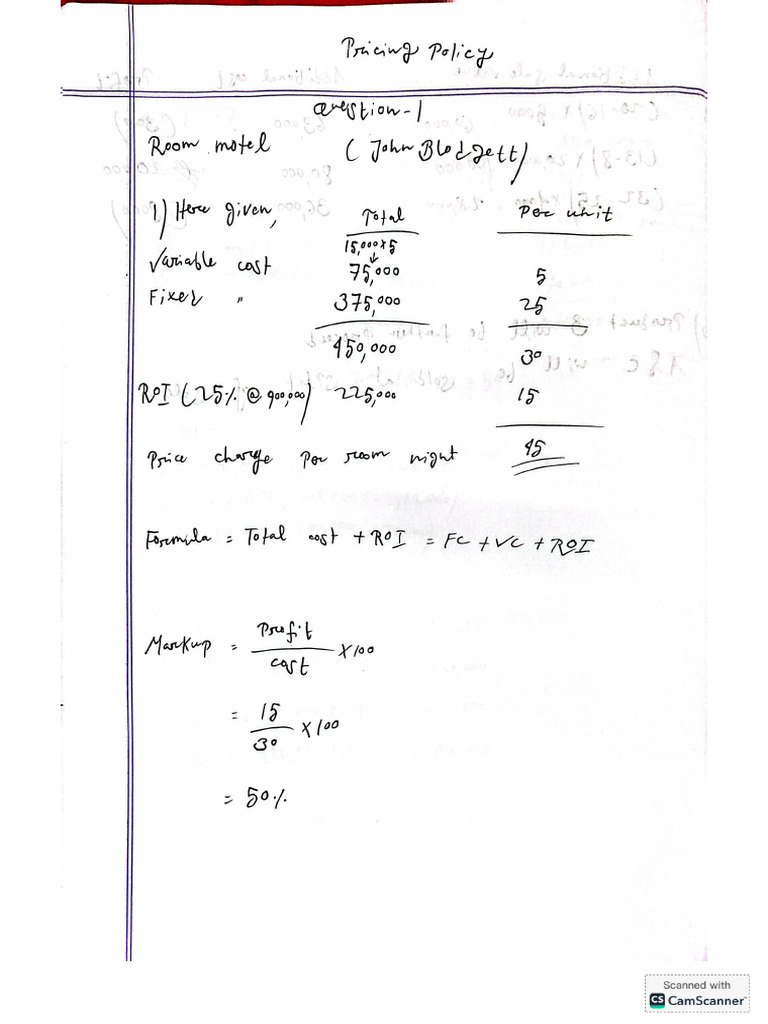 Pricing Policy
Question-1
Room motel (John Blodgett)
1) Here given, Total Per unit
15,000x5
Variable cost 75,000 5
Fixed " 375,000 25
450,000 30
ROI (25% @ 900,000) 225,000 15
Price charge Per room night 45
Formula = Total cost + ROI = FC + VC + ROI
Markup = Profit / cost X 100
= 15 / 30 X 100
= 50%
Scanned with
CS CamScanner